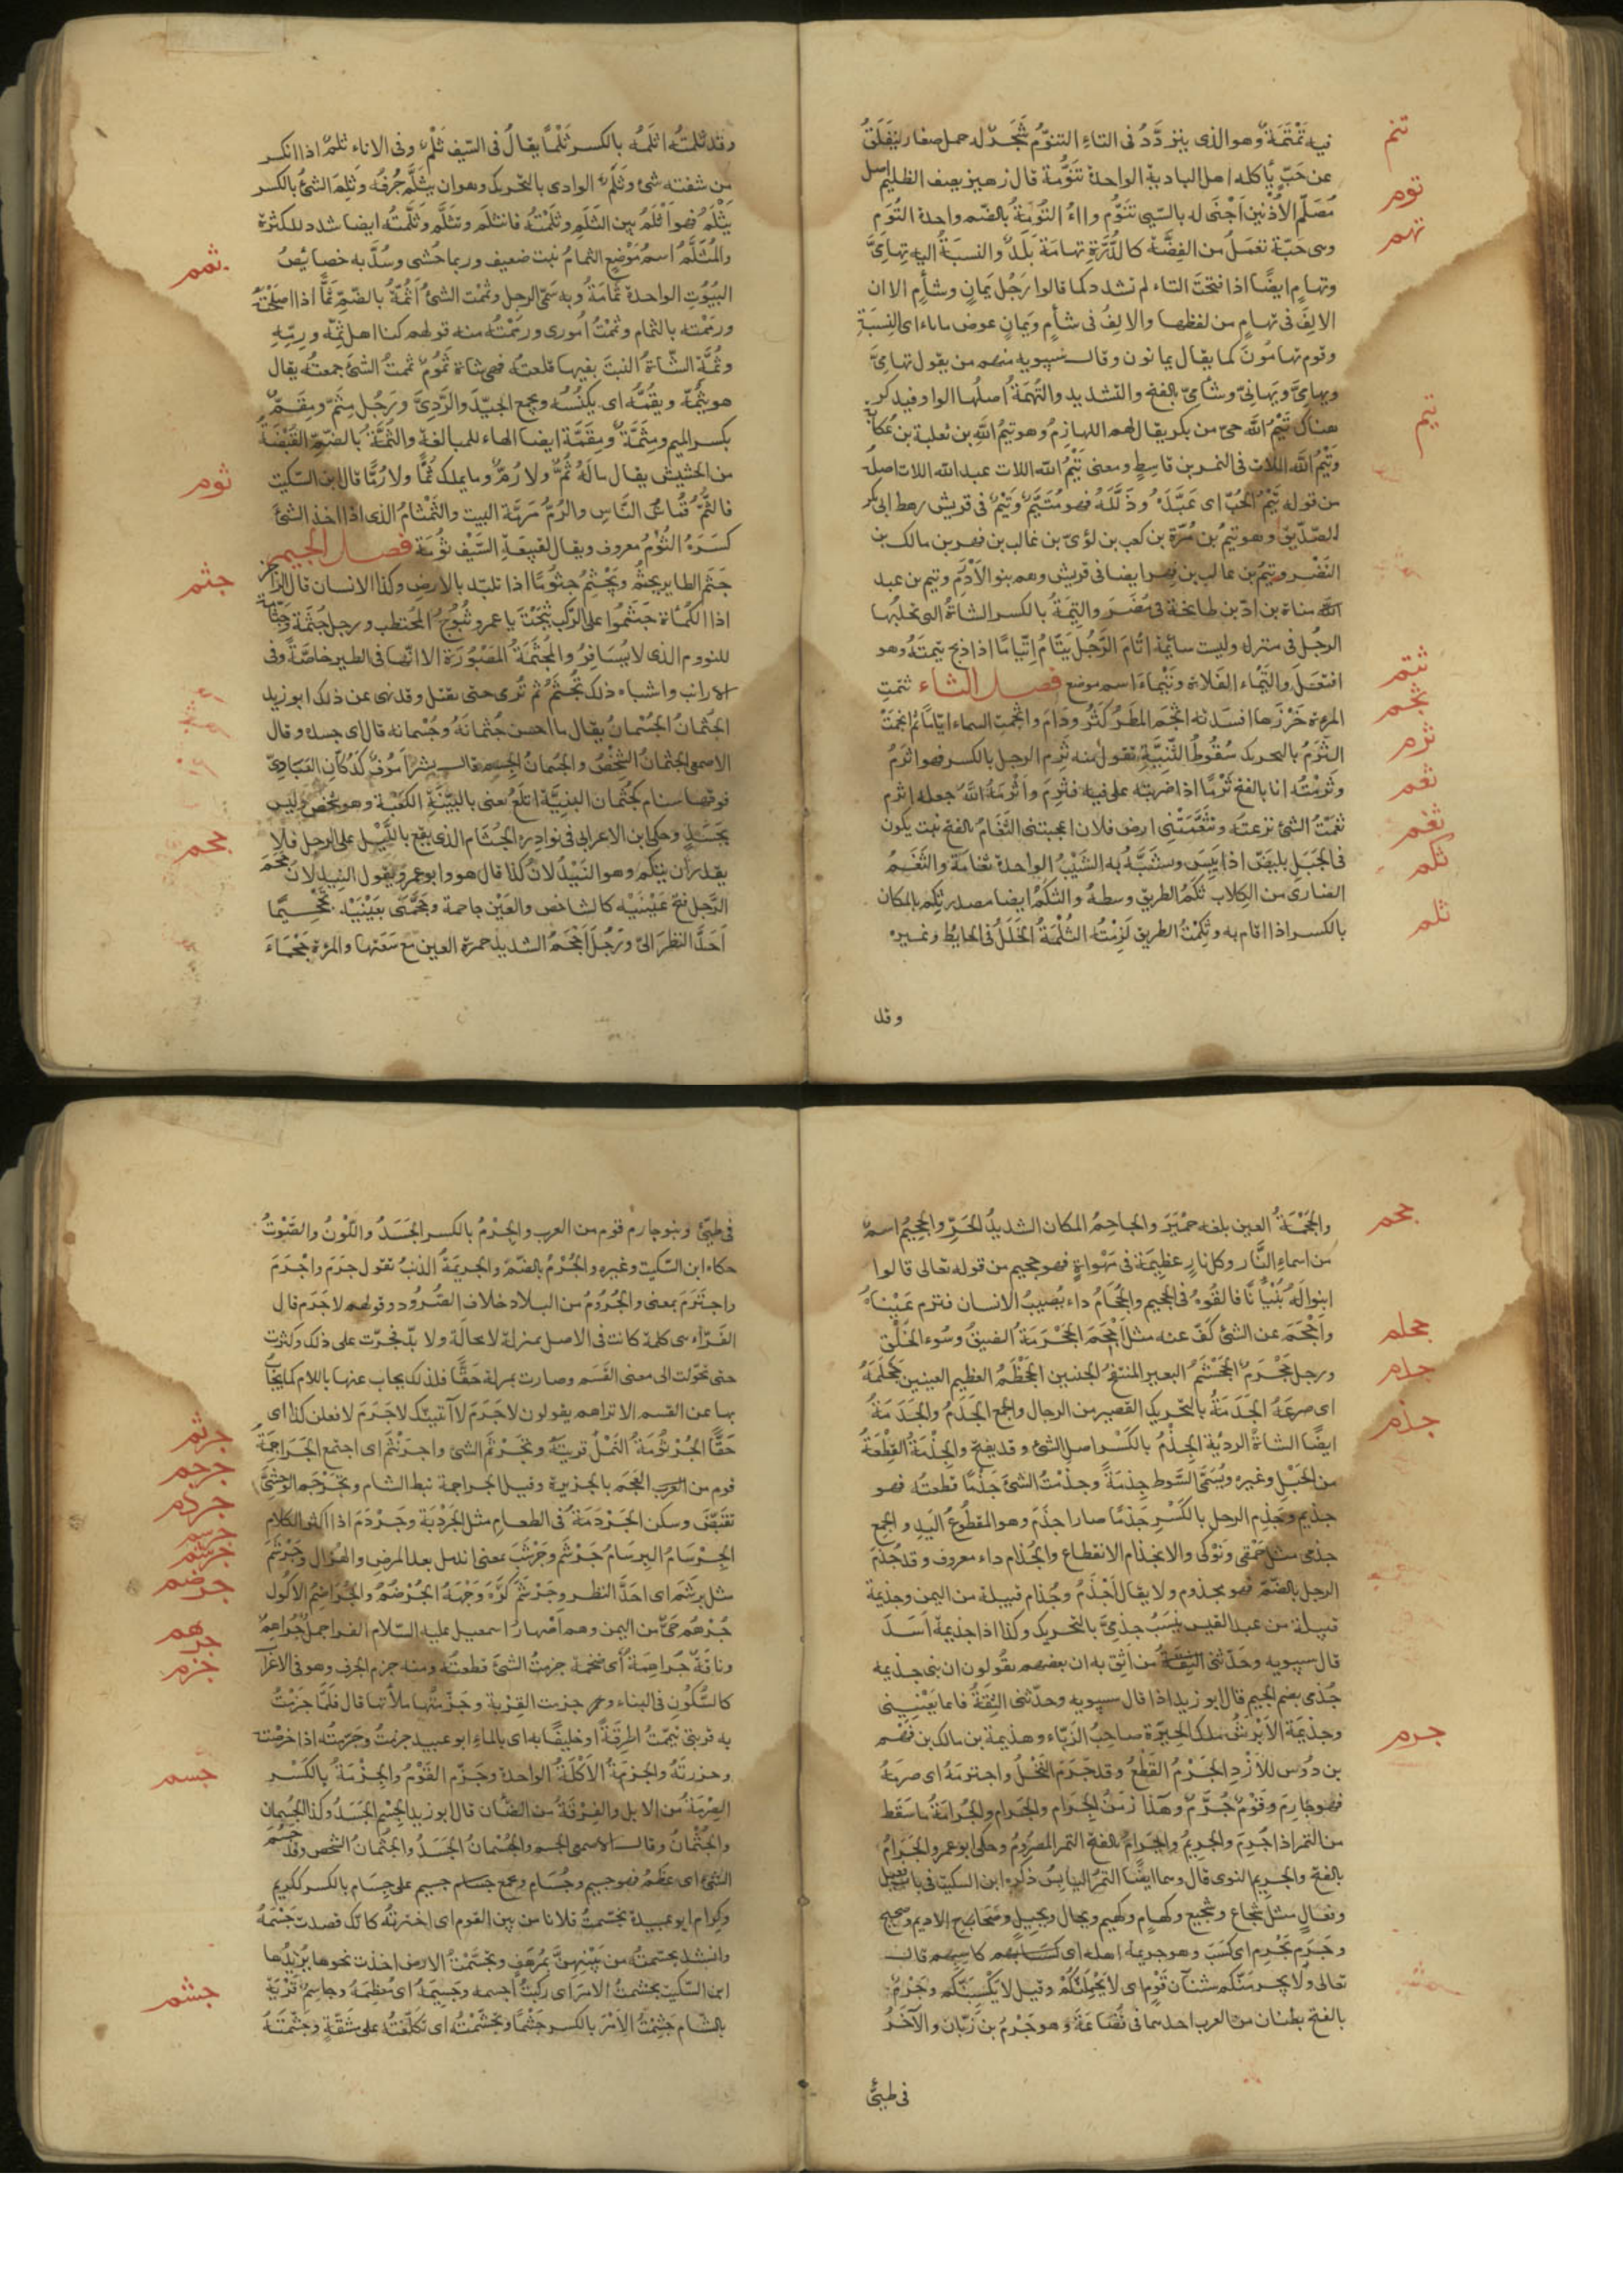 فيه تمتمة وهو الذى يتردّد فى التاء التنوّم شجر له حمل صغار يتفلق
تنم
عن حبّ يأكله اهل البادية الواحدة تنّومة قال زهير يصف الظليم اسك
مصلّم الأذنين اجنى له بالسّيّ تنّوم وآء التومة بالضم واحدة التوم
توم
وهى حبّة تعمل من الفضّة كالدّرّة تهامة بلد والنسبة اليه تهامىّ
تهم
وتهام ايضًا اذا فتحت التاء لم تشدد كما قالوا رجل يمان وشآم الا ان
الالف فى تهام من لفظها والالف فى شآم ويمان عوض من ياءى النسبة
وقوم تهامون كما يقال يمانون وقال سيبويه منهم من يقول تهامىّ
ويمانىّ وشآمىّ بالفتح والتشديد والتهمة اصلها الواو فيذكر
هناك تيم الله حىّ من بكر يقال لهم اللهازم وهو تيم الله بن ثعلبة بن عكابة
تيم
وتيم الله اللات فى النمر بن قاسط ومعنى تيم الله اللات عبد الله اللات اصله
من قوله تيّم الحبّ اى عبّده وذلّله فهو متيّم وتيم فى قريش رهط ابى بكر
الصّدّيق وهو تيم بن مرّة بن كعب بن لؤىّ بن غالب بن فهر بن مالك بن
النضر وتيم بن غالب بن فهر ايضا فى قريش وهم بنو الأدرم وتيم بن عبد
مناة بن ادّ بن طابخة فى مضر والتيمة بالكسر الشاة التى تحلبها
الرجل فى منزله وليست سائمة اتّام الرّجل يتّام اتّيامًا اذا ذبح تيمته وهو
افتعل والتيماء الفلاة وتيماء اسم موضع فصل الثاء ثتمت
ثتم
المرءة خرزها افسدته اثجم المطر كثر ودام واثجمت السماء ايّامًا ثم انجمت
ثجم
الثرم بالتحريك سقوط الثّنيّة تقول منه ثرم الرجل بالكسر فهو اثرم
ثرم
وثرمته انا بالفتح ثرمًا اذا ضربته على فيه فثرم واثرمه الله جعله اثرم
ثعمت الشئ نزعته وتثعّمتنى ارض فلان اعجبتنى الثغام بالفتح نبت يكون
ثعم
فى الجبل يبيضّ اذا يبس ويشبّه به الشيب الواحدة ثغامة والثغم
ثغم
الضارى من الكلاب ثكم الطريق وسطه والثكم ايضا مصدر ثكم بالمكان
ثكم
بالكسر اذا اقام به وثكمت الطريق لزمته الثلمة الخلل فى الحايط وغيره
ثلم
وقد
وقد ثلمته اثلمه بالكسر ثلمًا يقال فى السّيف ثلم وفى الاناء ثلم اذا انكسر
من شفته شئ وثلم الوادى بالتحريك وهو ان يتثلّم جرفه وثلم الشئ بالكسر
يثلم فهو اثلم بين الثلم وثلمته فانثلم وتثلّم وثلّمته ايضا شدد للكثرة
والمتثلّم اسم موضع الثمام نبت ضعيف وربما حشى وسدّ به خصايص
ثمم
البيوت الواحدة ثمامة وبه سمّى الرجل وثممت الشئ اثمّه بالضمّ ثمًّا اذا اصلحته
ورممته بالثمام وثممت امورى ورممته منه قولهم كنا اهل ثمّه ورمّه
وثمّت الشّاة النبت بفيها قلعته فهى شاة ثموم ثممت الشئ جمعته يقال
هو يثمّه ويقمّه اى يكنسه ويجمع الجيّد والرّدىّ ورجل مثمّ ومقمّ
بكسر الميم ومثمّة ومقمّة ايضا الهاء للمبالغة والثمّة بالضمّ القبضة
من الحشيش يقال ما له ثمّ ولا رمّ وما يملك ثمًّا ولا رمًّا قال ابن السّكيت
ثوم
فالثمّ قماش النّاس والرمّ مرمّة البيت والثمثام الذى اذا اخذ الشئ
كسره الثوم معروف ويقال لقبيعة السّيف ثومة فصل الجيم
جثم الطاير يجثم ويجثم جثومًا اذا تلبّد بالارض وكذا الانسان قال الراجز
جثم
اذا الكماة جثموا على الركب ثبجت يا عمرو ثبوج المحتطب ورجل جثمة وجثّامة
للنووم الذى لا يسافر والمجثّمة المصبورة الا انّها فى الطير خاصّة وفى
الارانب واشباه ذلك تجثّم ثم ترمى حتى تقتل وقد نهى عن ذلك ابو زيد
الجثمان الجسمان يقال ما احسن جثمانه وجسمانه قال اى جسده وقال
الاصمعى الجثمان الشخص والجسمان الجسم قال بشر امون كدكّان العبادىّ
فوقها سنام كجثمان البنيّة اتلع يعنى بالبنيّة الكعبة وهو شخص وليس
بجسد وحكى ابن الاعرابى فى نوادره الجثّام الذى يقع بالليل على الرجل فلا
جحم
يقدر ان يتكلم وهو النّيدلان كذا قال هو وابو عمرو يقول النيدلان جحّم
الرّجل فتح عينيه كالشاخص والعين جاحمة وجحّمنى بعينيه تجحيمًا
احدّ النظر الىّ ورجل اجحم الشديد حمرة العين مع سعتها والمرءة جحماء
والجحمة العين بلغة حمير والجاحم المكان الشديد الحرّ والجحيم اسم
جحم
من اسماء النّار وكل نار عظيمة فى مهواة فهو جحيم من قوله تعالى قالوا
ابنوا له بنيانًا فالقوه فى الجحيم والجحام داء يصيب الانسان فترم عيناه
واجحم عن الشئ كفّ عنه مثل احجم الجحرمة الضيق وسوء الخلق
جحلم
ورجل جحرم الجحشم البعير المنتفخ الجنبين الجحظم العظيم العينين جحلمه
جدم
اى صرعه الجدمة بالتحريك القصير من الرجال والجمع الجدم والجدمة
ايضًا الشاة الردية الجذم بالكسر اصل الشئ وقد يفتح والجذمة القطعة
جذم
من الحبل وغيره ويسمّى السّوط جذمة وجذمت الشئ جذمًا قطعته فهو
جذيم وجذم الرجل بالكسر جذمًا صار اجذم وهو المقطوع اليد والجمع
جذمى مثل حمقى ونوكى والانجذام الانقطاع والجذام داء معروف وقد جذم
الرجل بالضمّ فهو مجذوم ولا يقال اجذم وجذام قبيلة من اليمن وجذيمة
قبيلة من عبد القيس ينسب جذمىّ بالتحريك وكذا اذا جذيمة اسد
قال سيبويه وحدّثنى الثقة من اثق به ان بعضهم يقولون ان بنى جذيمه
جذمى بضم الجيم قال ابو زيد اذا قال سيبويه وحدّثنى الثقة فانما يعنينى
وجذيمة الابرش ملك الحيرة صاحب الزبّاء وهو جذيمة بن مالك بن فهم
جرم
بن دوس للازد الجرم القطع وقد جرم النخل واجترمه اى صرمه
فهو جارم وقوم جرّم وهذا زمن الجرام والجرام والجرامة ما سقط
من التمر اذا جرم والجريم والجرام بالفتح التمر المصروم وحكى ابو عمرو الجرام
بالفتح والجريم النوى قال وهما ايضًا التمر اليابس ذكره ابن السكيت فى باب فعيل
وفعال مثل شجاع وشجيع وكهام وكهيم وبجال وبجيل وصحاح الاديم وصحيح
وجرم يجرم اى كسب وهو جريمة اهله اى كاسبهم قال
تعالى ولا يجرمنّكم شنآن قوم اى لا يحملنّكم وقيل لا يكسبنّكم وجرم
بالفتح بطنان من العرب احدهما فى قضاعة وهو جرم بن زبّان والآخر
فى طيئ
فى طيّئ وبنو جارم قوم من العرب والجرم بالكسر الجسد واللّون والصّوت
حكاه ابن السّكيت وغيره والجرم بالضمّ والجريمة الذنب تقول جرم واجرم
واجترم بمعنى والجروم من البلاد خلاف الصّرود وقولهم لا جرم قال
الفرّاء هى كلمة كانت فى الاصل بمنزلة لا محالة ولا بدّ فجرت على ذلك وكثرت
حتى تحوّلت الى معنى القسم وصارت بمنزلة حقًّا فلذلك يجاب عنها باللام كما يجاب
بها عن القسم الا تراهم يقولون لا جرم لآتينّك لا جرم لافعلن كذا اى
حقًّا الجرثومة النمل قريته وتجرثم الشئ واجرنثم اى اجتمع الجراجمة
جرثم
قوم من العجم بالجزيرة وقيل الجراجمة نبط الشام وتجرجم الوحشىّ
جرجم
تقبّض وسكن الجردمة فى الطعام مثل الجردبة وجردم اذا اكثر الكلام
جردم
الجرسام البرسام جرشم وجرشب بمعنى اندمل بعد المرض والهزال وجرشم
جرسم
جرشم
مثل برشم اى احدّ النظر وجرشم كرّه وجهه الجرضم والجراضم الاكول
جرضم
جرهم حىّ من اليمن وهم اصهار اسمعيل عليه السّلام الفرا جمل جراهم
جرهم
وناقة جراهمة اى ضخمة جزمت الشئ قطعته ومنه جزم الحرف وهو فى الاعراب
جزم
كالسّكون فى البناء وجزمت القربة وجزّمتها ملأتها قال فلمّا جزمت
به قربتى تيمّمت اطرقة او خليفًا به اى بالماء ابو عبيد جزمت وجزمته اذا خرصته
وحزرته والجزمة الأكلة الواحدة وجزّم القوم والجزمة بالكسر
الصرمة من الابل والفرقة من الضأن قال ابو زيد الجسم الجسد وكذا الجسمان
جسم
والجثمان وقال الاصمعى الجسم والجسمان الجسد والجثمان الشخص وقد جسم
الشئ اى عظم فهو جسيم وجسام وجمع جسام جسيم على جسام بالكسر ككريم
وكرام ابو عبيدة تجسّمت فلانا من بين القوم اى اخترته كانّك قصدت جسمه
وانشد تجسّمته من بينهنّ بمرهف وتجسّمت الارض اخذت نحوها يريدها
ابن السّكيت تجسّمت الامر اى ركبت اجسمه وجسيمه اى معظمه وجاسم قرية
بالشام جشمت الأمر بالكسر جشمًا وتجشّمته اى تكلّفته على مشقّة وجشّمته
جشم